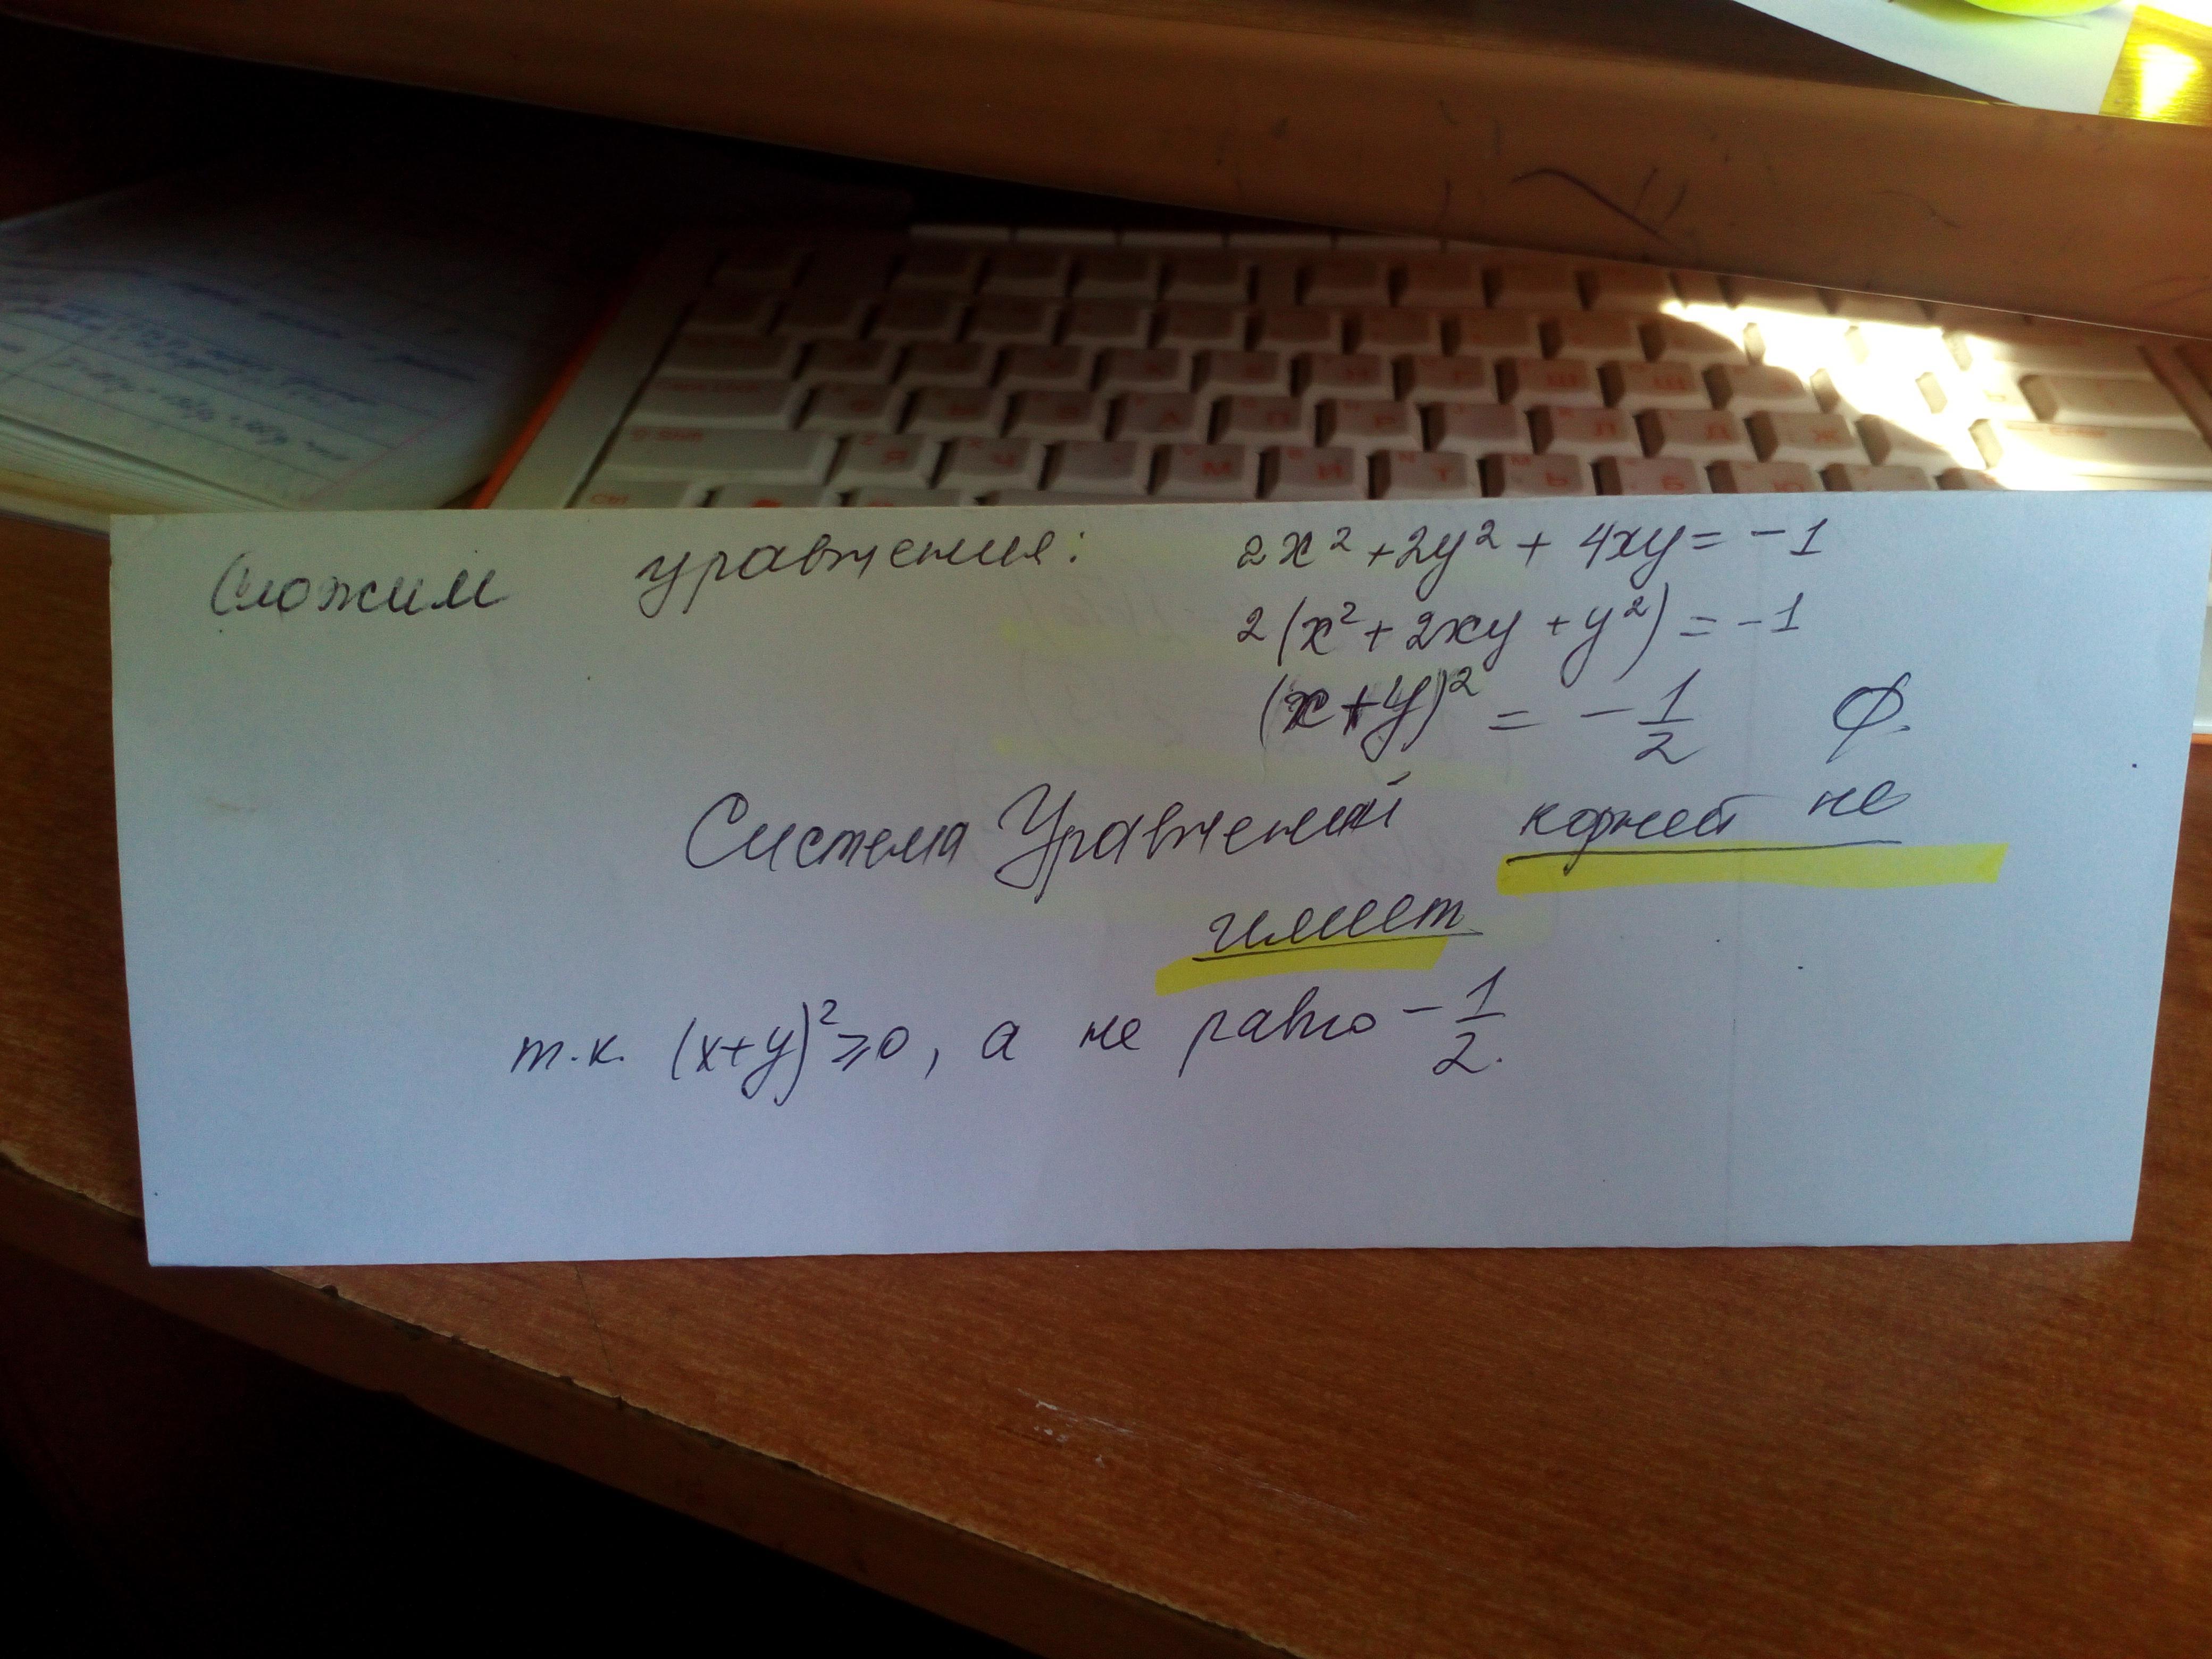 Сложим уравнения: 2x² + 2y² + 4xy = -1
2(x² + 2xy + y²) = -1
(x+y)² = -1/2 Ø.
Система Уравнений корней не
имеет
т.к. (x+y)² ≥ 0, а не равно -1/2.